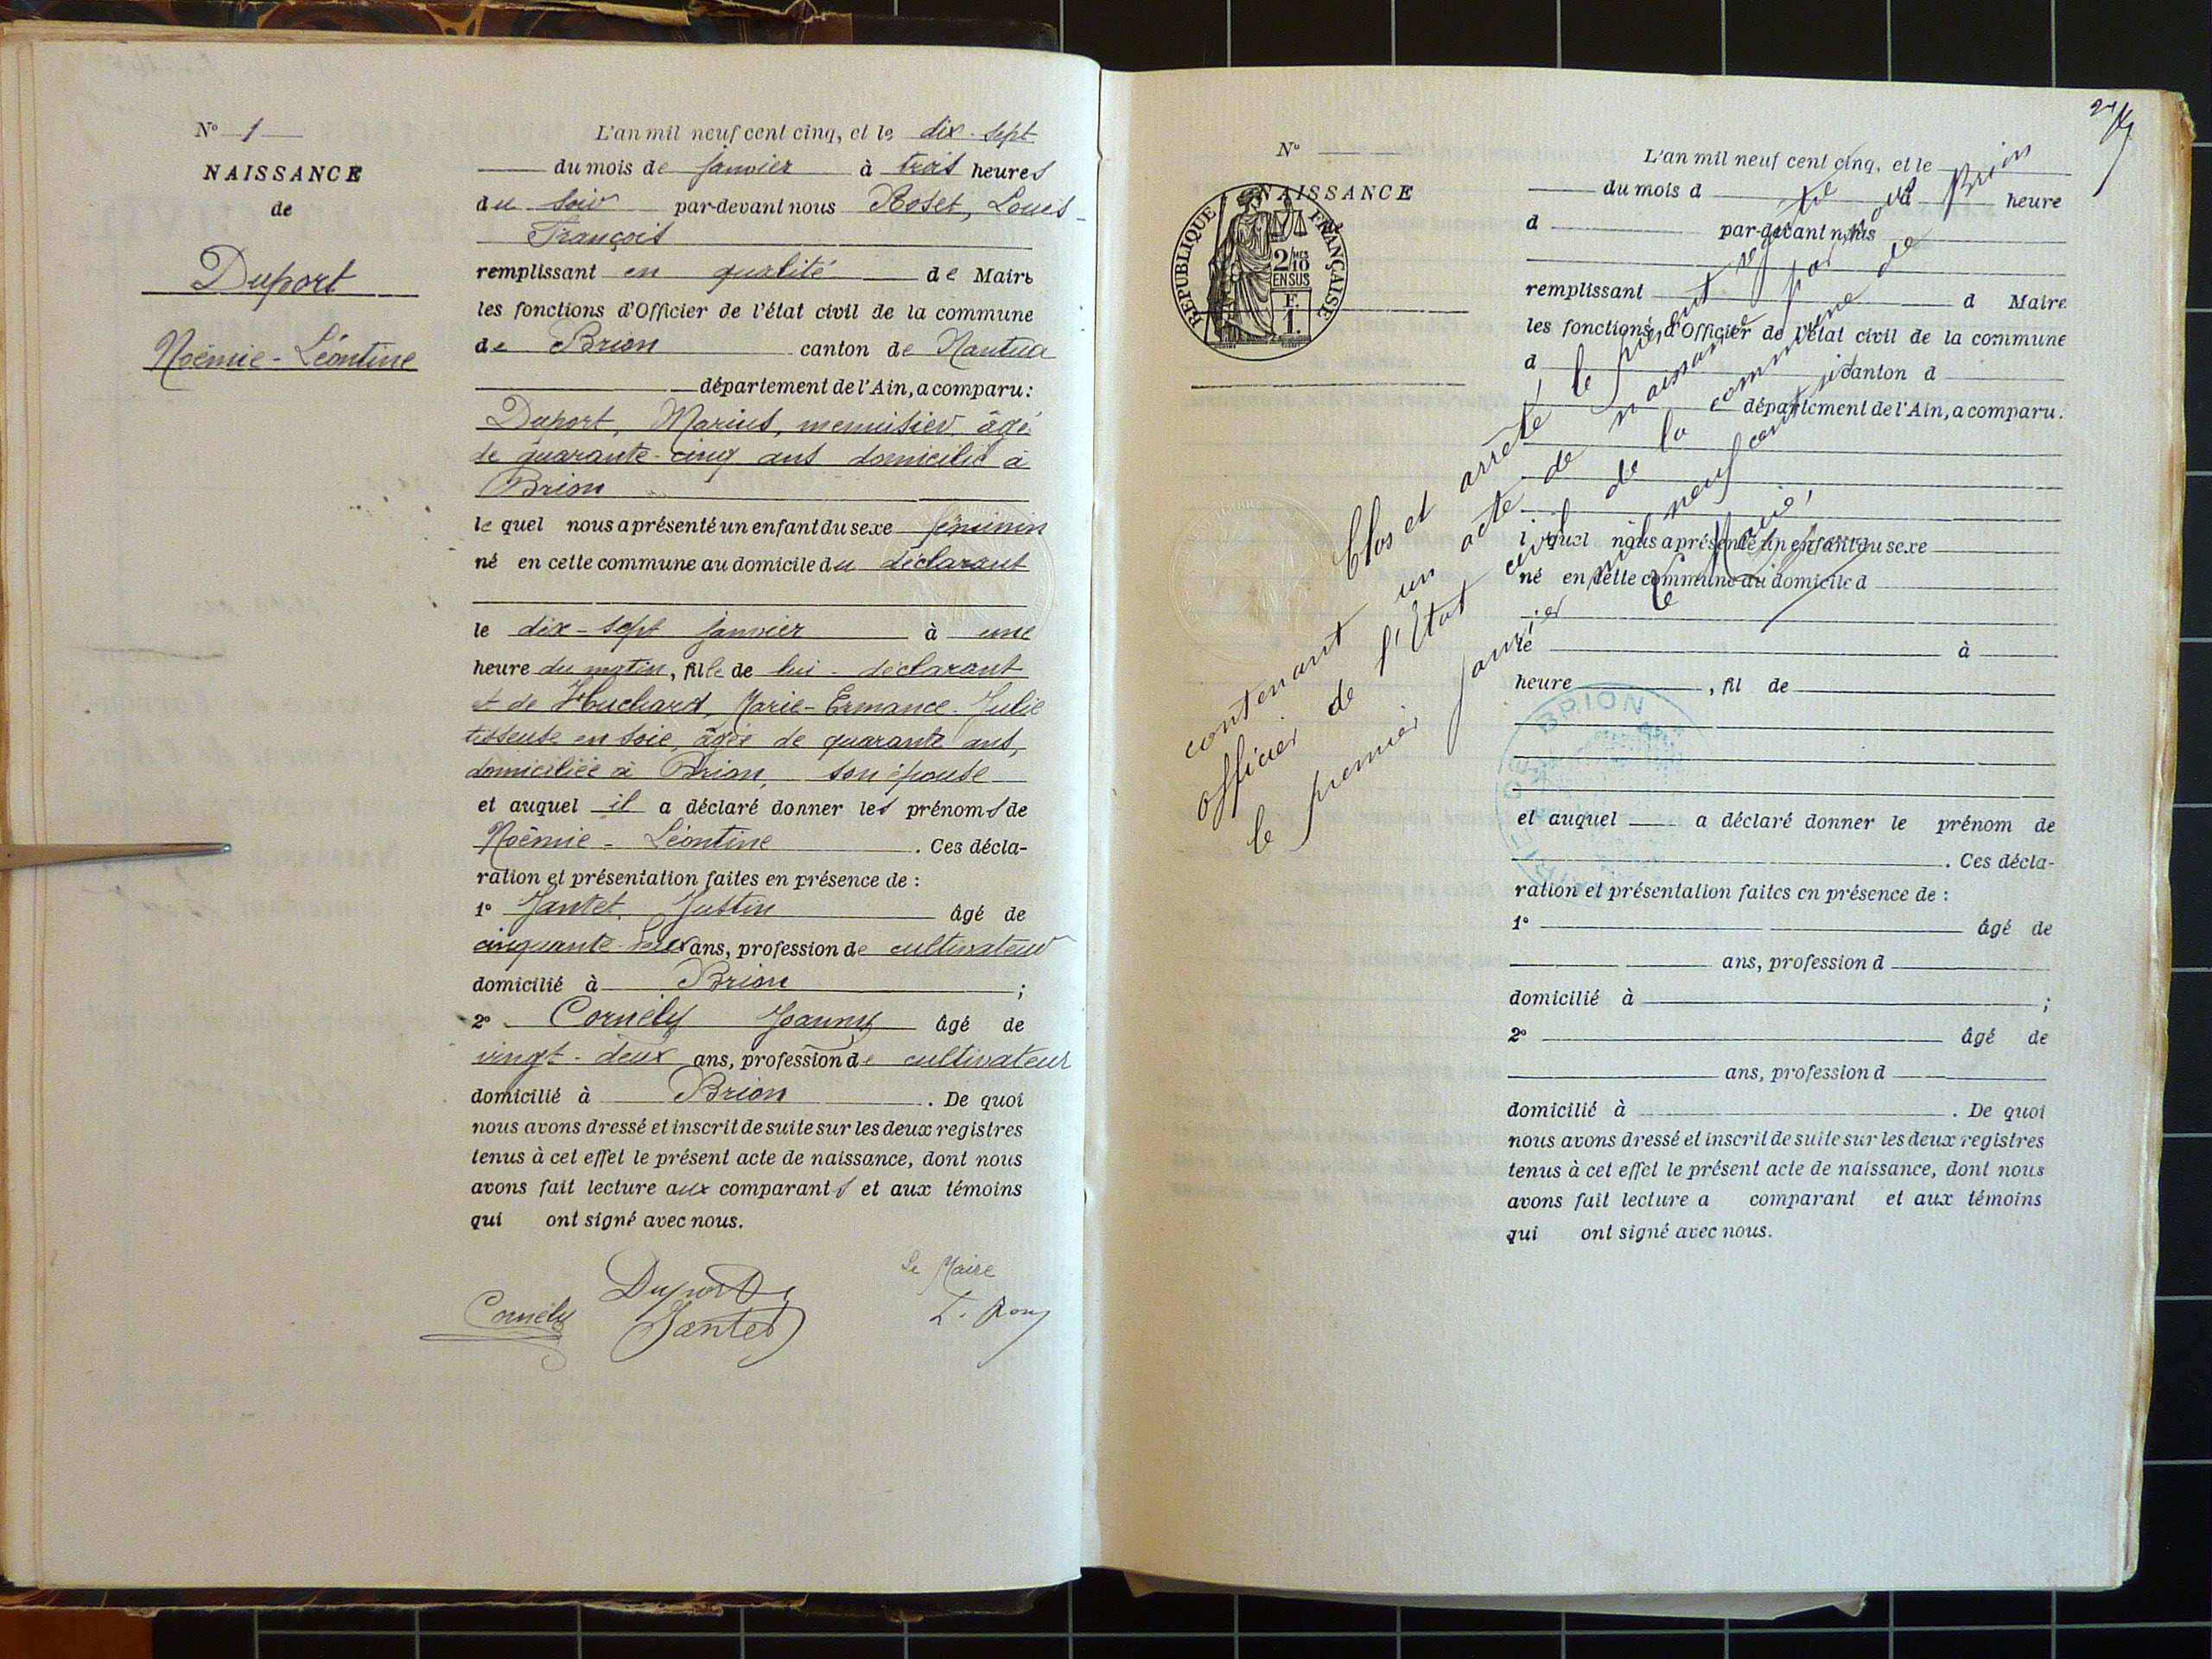 N° 1
NAISSANCE
de
Duport
Noémie - Léontine
L'an mil neuf cent cinq, et le dix-sept
du mois de janvier à trois heures
du soir par-devant nous Roset, Louis-
François
remplissant en qualité de Maire
les fonctions d'Officier de l'état civil de la commune
de Brion canton de Nantua
département de l'Ain, a comparu :
Duport, Marius, menuisier, âgé
de quarante-cinq ans domicilié à
Brion
le quel nous a présenté un enfant du sexe féminin
né en cette commune au domicile du déclarant
le dix-sept janvier à une
heure du matin, fille de lui-déclarant
et de Huchard, Marie-Ermance-Julie
tisseuse en soie, âgée de quarante ans,
domiciliée à Brion, son épouse
et auquel il a déclaré donner les prénoms de
Noémie - Léontine. Ces décla-
ration et présentation faites en présence de :
1° Jantet, Justin âgé de
cinquante-deux ans, profession de cultivateur
domicilié à Brion ;
2° Cornély Joanny âgé de
vingt-deux ans, profession de cultivateur
domicilié à Brion. De quoi
nous avons dressé et inscrit de suite sur les deux registres
tenus à cet effet le présent acte de naissance, dont nous
avons fait lecture aux comparants et aux témoins
qui ont signé avec nous.
Le Maire
Duport
Cornély Jantet
N°
NAISSANCE
RÉPUBLIQUE FRANÇAISE
2/10
EN SUS
F.
1.
L'an mil neuf cent cinq, et le
du mois d à heure
d par-devant nous
remplissant d Maire
les fonctions d'Officier de l'état civil de la commune
d canton d
département de l'Ain, a comparu.
l quel nous a présenté un enfant du sexe
né en cette commune au domicile d
le à
heure , fil de
et auquel a déclaré donner le prénom de
. Ces décla-
ration et présentation faites en présence de :
1° âgé de
ans, profession d
domicilié à ;
2° âgé de
ans, profession d
domicilié à . De quoi
nous avons dressé et inscrit de suite sur les deux registres
tenus à cet effet le présent acte de naissance, dont nous
avons fait lecture a comparant et aux témoins
qui ont signé avec nous.
Clos et arrêté le présent registre
contenant un acte de naissance par nous
officier de l'Etat civil de la commune de Brion
le premier janvier mil neuf cent six
Le Maire,
BRION